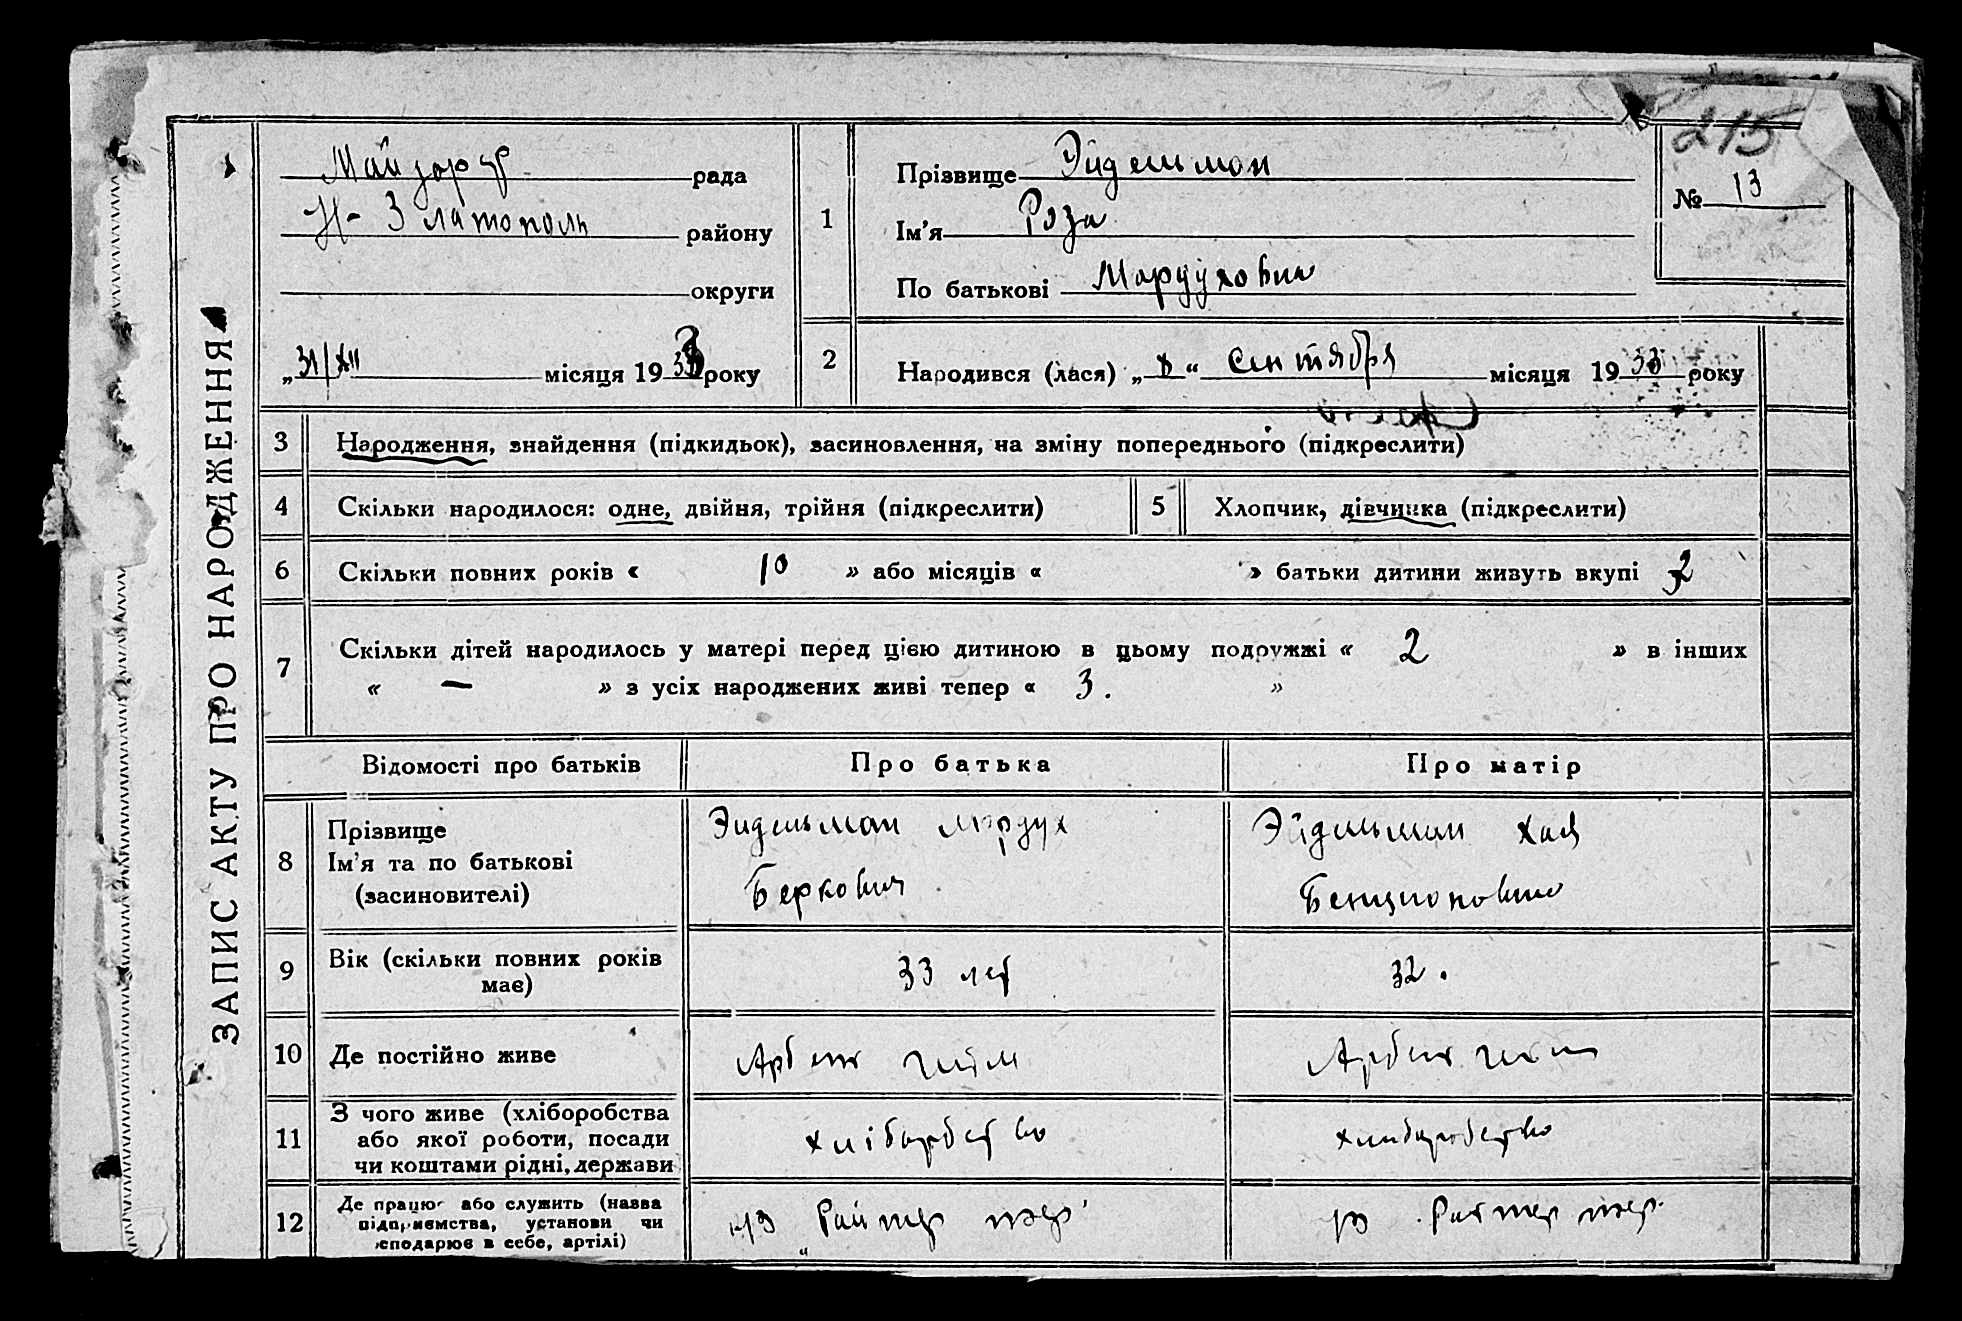 215
ЗАПИС АКТУ ПРО НАРОДЖЕННЯ
рада
Н- Златополь району
округи
„31/XII місяця 1933 року
1
Прізвище Эйдельман
Ім’я Роза
По батькові Мордухович
№ 13
2
Народився (лася) „ “ Сентября місяця 1933 року
3 Народження, знайдення (підкидьок), засиновлення, на зміну попереднього (підкреслити)
4 Скільки народилося: одне, двійня, трійня (підкреслити)
5 Хлопчик, дівчинка (підкреслити)
6 Скільки повних років « 10 » або місяців « » батьки дитини живуть вкупі 2
7 Скільки дітей народилось у матері перед цією дитиною в цьому подружжі « 2 » в інших
« — » з усіх народжених живі тепер « 3. »
Відомості про батьків Про батька Про матір
8 Прізвище Ім’я та по батькові (засиновителі)
Эйдельман Мордух
Беркович
Эйдельман Хая
Бенционовна
9 Вік (скільки повних років має) 33 лет 32.
10 Де постійно живе Арбейт гейм Арбейт гейм
11 З чого живе (хліборобства або якої роботи, посади чи коштами рідні, держави
хліборобство хлиборобство
12 Де працює або служить (назва підприємства, установи чи господарює в себе, артілі)